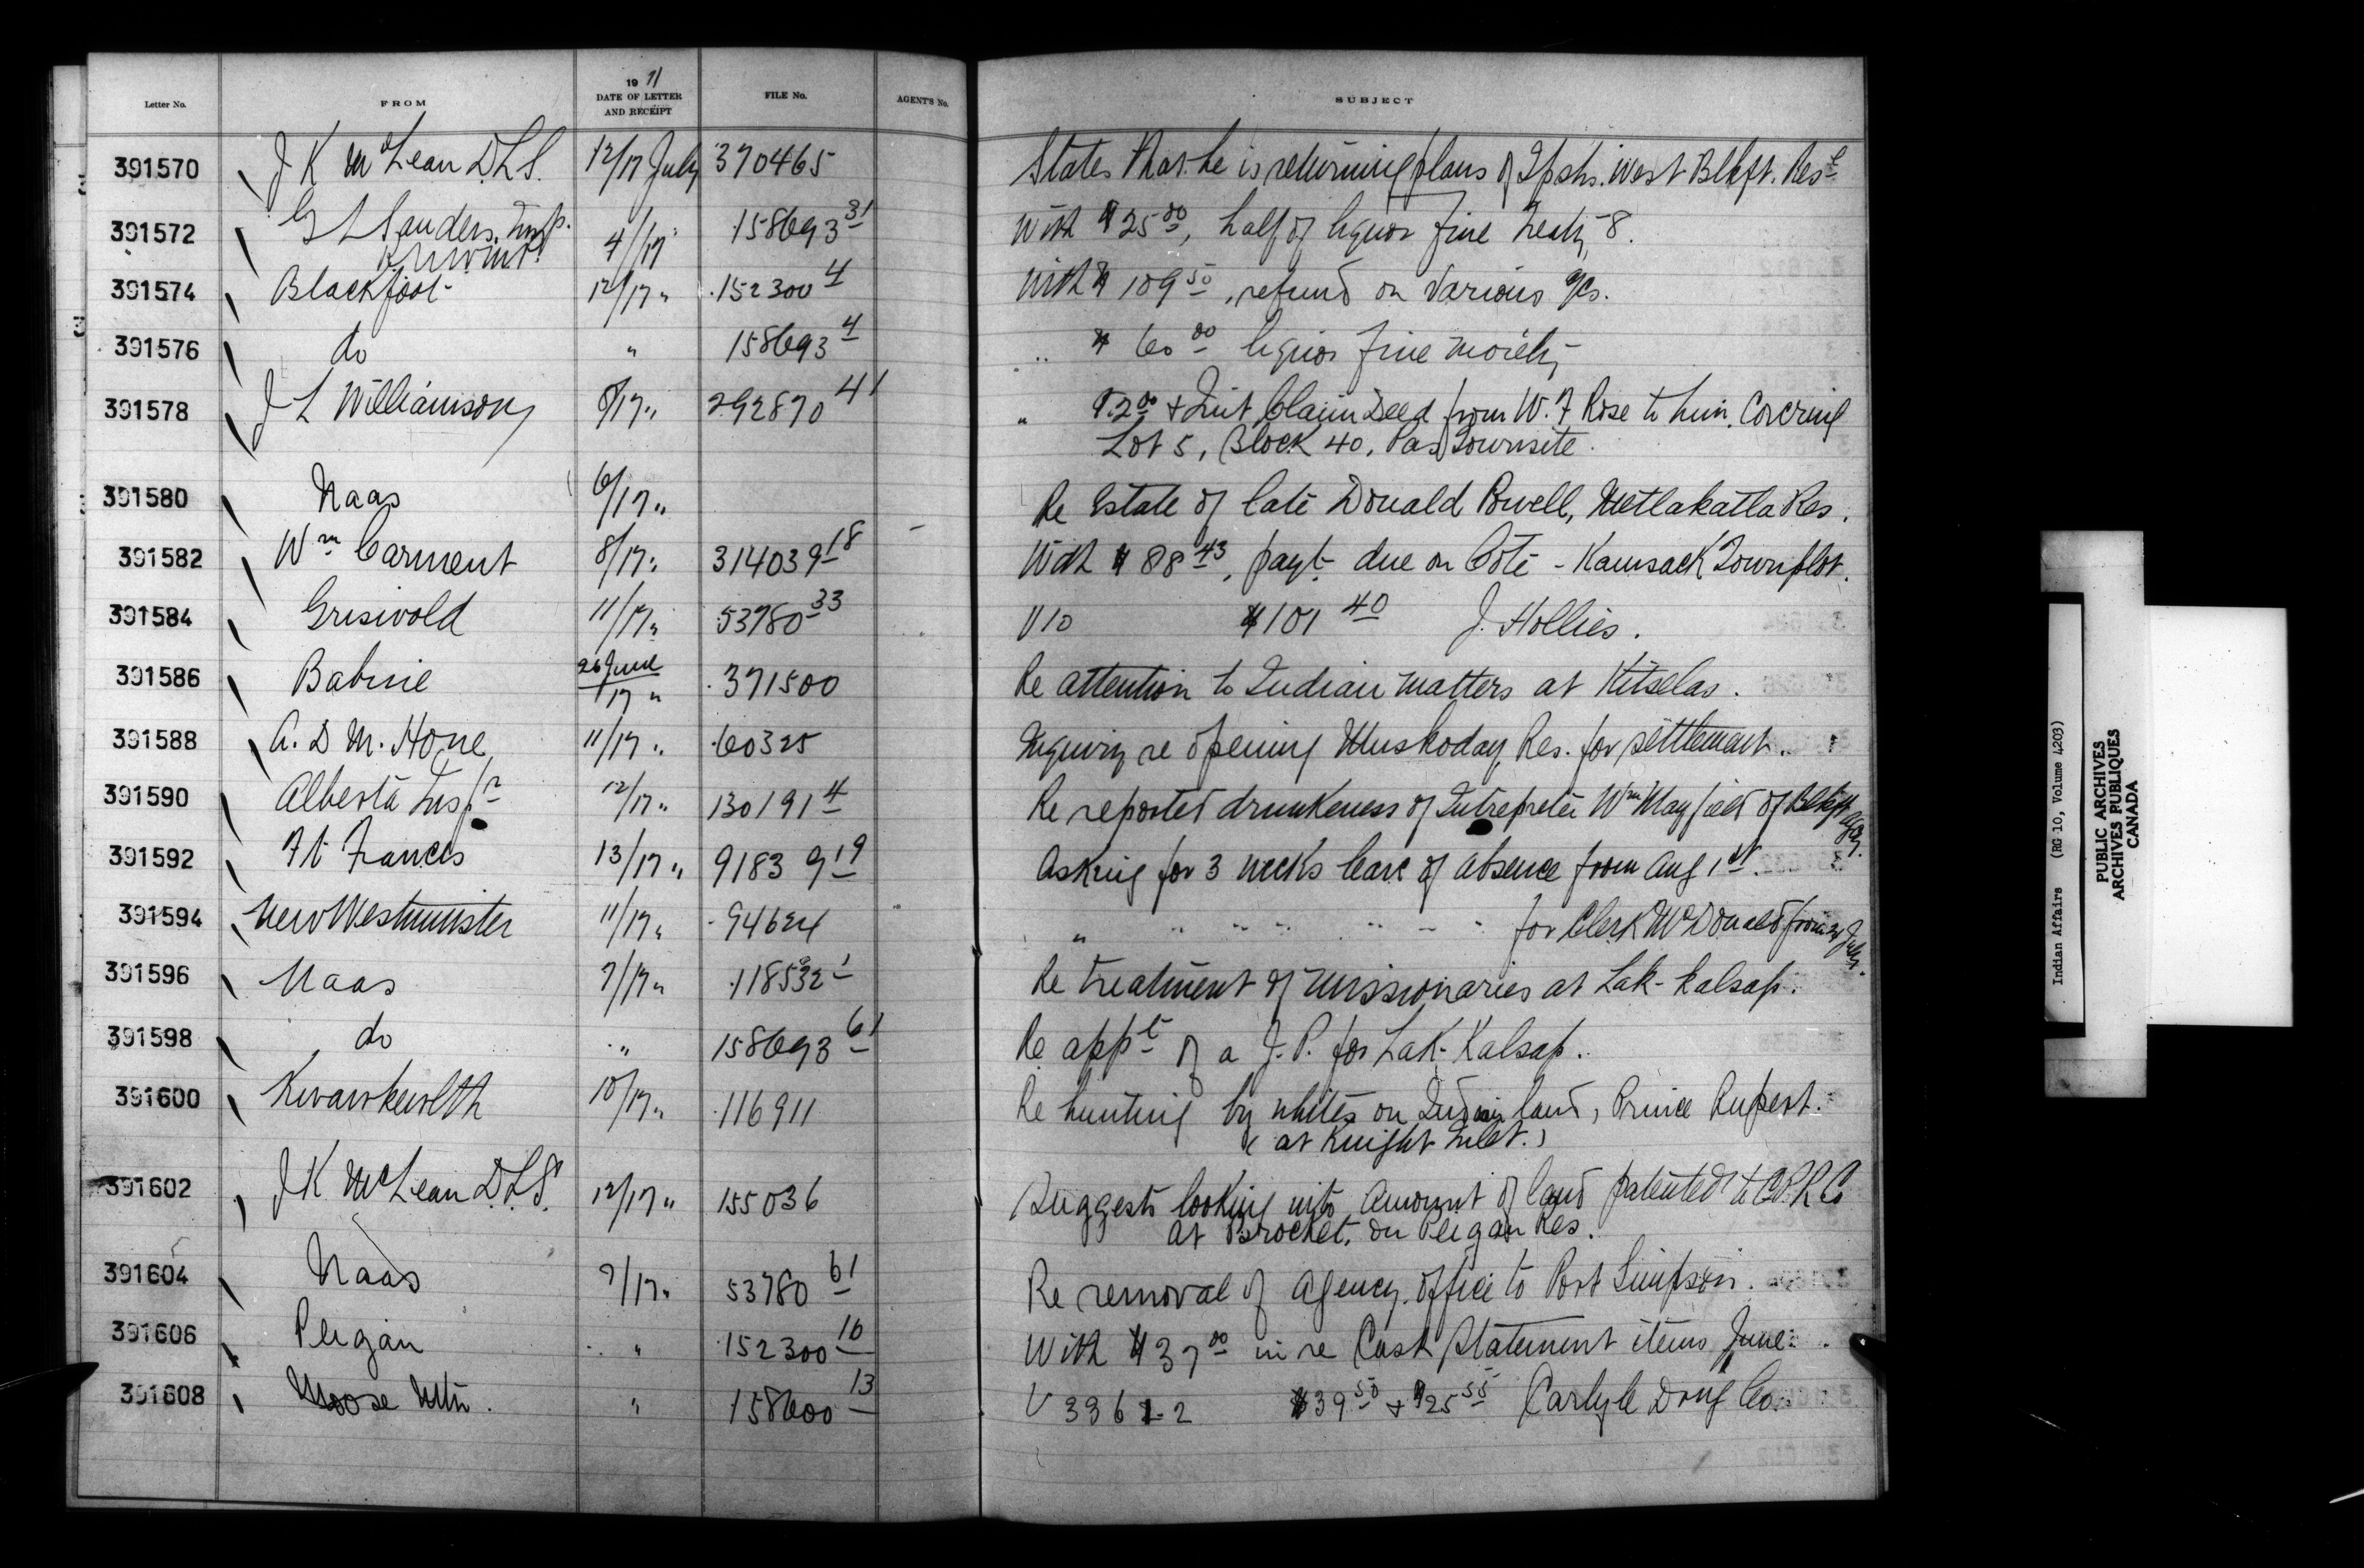 Letter No. FROM 1911 DATE OF LETTER AND RECEIPT FILE No. AGENT'S No. SUBJECT
391570 J K McLean D.L.S. 12/17 July 370465 States that he is returning plans of Tpshs. West Blkft. Rese
391572 G L Sanders, Insp. 4/17 " 158693 31 With $25 00, half of liquor fine Treaty 8.
391574 Blackfoot 12/17 " 152300 4 With $109 50, refund on various a/cs.
391576 do " 158693 4 " $60 00 liquor fine moiety
391578 J L Williamson 8/17 " 292870 41 " $2 00 + Quit Claim Deed from W. F Rose to him, Covering
Lot 5, Block 40, Pas Townsite.
391580 Naas 6/17 " Re Estate of late Donald Powell, Metlakatla Res.
391582 Wm Carment 8/17 " 314039 18 With $88 43, payt due on Coté - Kamsack Townplot.
391584 Griswold 11/17 " 53780 33 V10 $101 40 J. Hollies.
391586 Babine 26 June /17 " 371500 Re attention to Indian matters at Kitselas.
391588 A. D M. Hone 11/17 " 60325 Inquiry re opening Muskoday Res. for settlement.
391590 Alberta Inspr 12/17 " 130191 4 Re reported drunkeness of Intrepreter Wm Mayfield of Blkft Agcy.
391592 Ft Frances 13/17 " 91839 19 Asking for 3 weeks leave of absence from Aug 1st.
391594 New Westminster 11/17 " 94624 " " " " " " " for Clerk McDonald from July.
391596 Naas 7/17 " 118532 1 Re treatment of missionaries at Lak-kalsap.
391598 do " 158693 61 Re appt of a J.P. for Lak-Kalsap.
391600 Kwawkewlth 10/17 " 116911 Re hunting by whites on Indian land, Prince Rupert.
( at Knight Inlet. )
391602 J K McLean D.L.S. 12/17 " 155036 Suggests looking into amount of land patented to C.P.R Co
at Brocket, on Peigan Res.
391604 Naas 7/17 " 53780 61 Re removal of Agency office to Port Simpson.
391606 Peigan " 152300 16 With $37 00 in re Cash Statement items June.
391608 Moose Mtn. " 158600 13 V 33612 $39 50 + $25 55 Carlyle Drug Co.
Indian Affairs (RG 10, Volume 4203)
PUBLIC ARCHIVES
ARCHIVES PUBLIQUES
CANADA